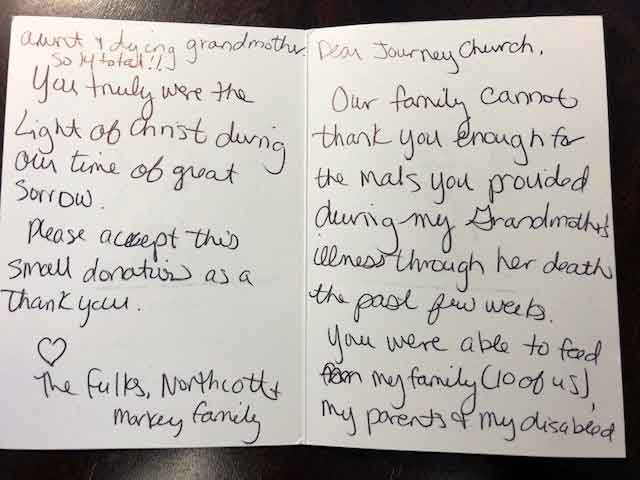 Dear Journey Church,
Our family cannot
thank you enough for
the mals you provided
during my Grandmother's
illness through her death
the past few weeks.
You were able to feed
my family (10 of us),
my parents & my disabled
aunt & dying grandmother.
So 14 total!!
You truly were the
Light of Christ during
our time of great
Sorrow.
Please accept this
small donation as a
Thank you.
The Fulks, Northcott +
Markey family